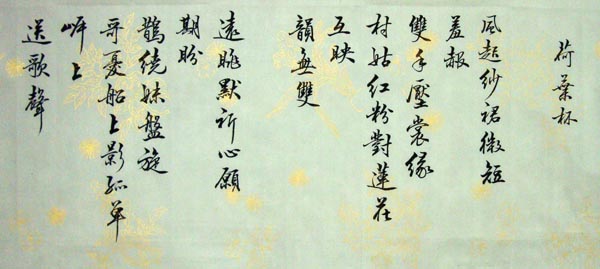 荷葉杯
風起紗裙微短
羞赧
雙手壓裳緣
村姑紅粉對蓮花
互映
韻無雙
遠眺默祈心願
期盼
鵲繞妹盤旋
哥憂船上影孤單
岸上
送歌聲